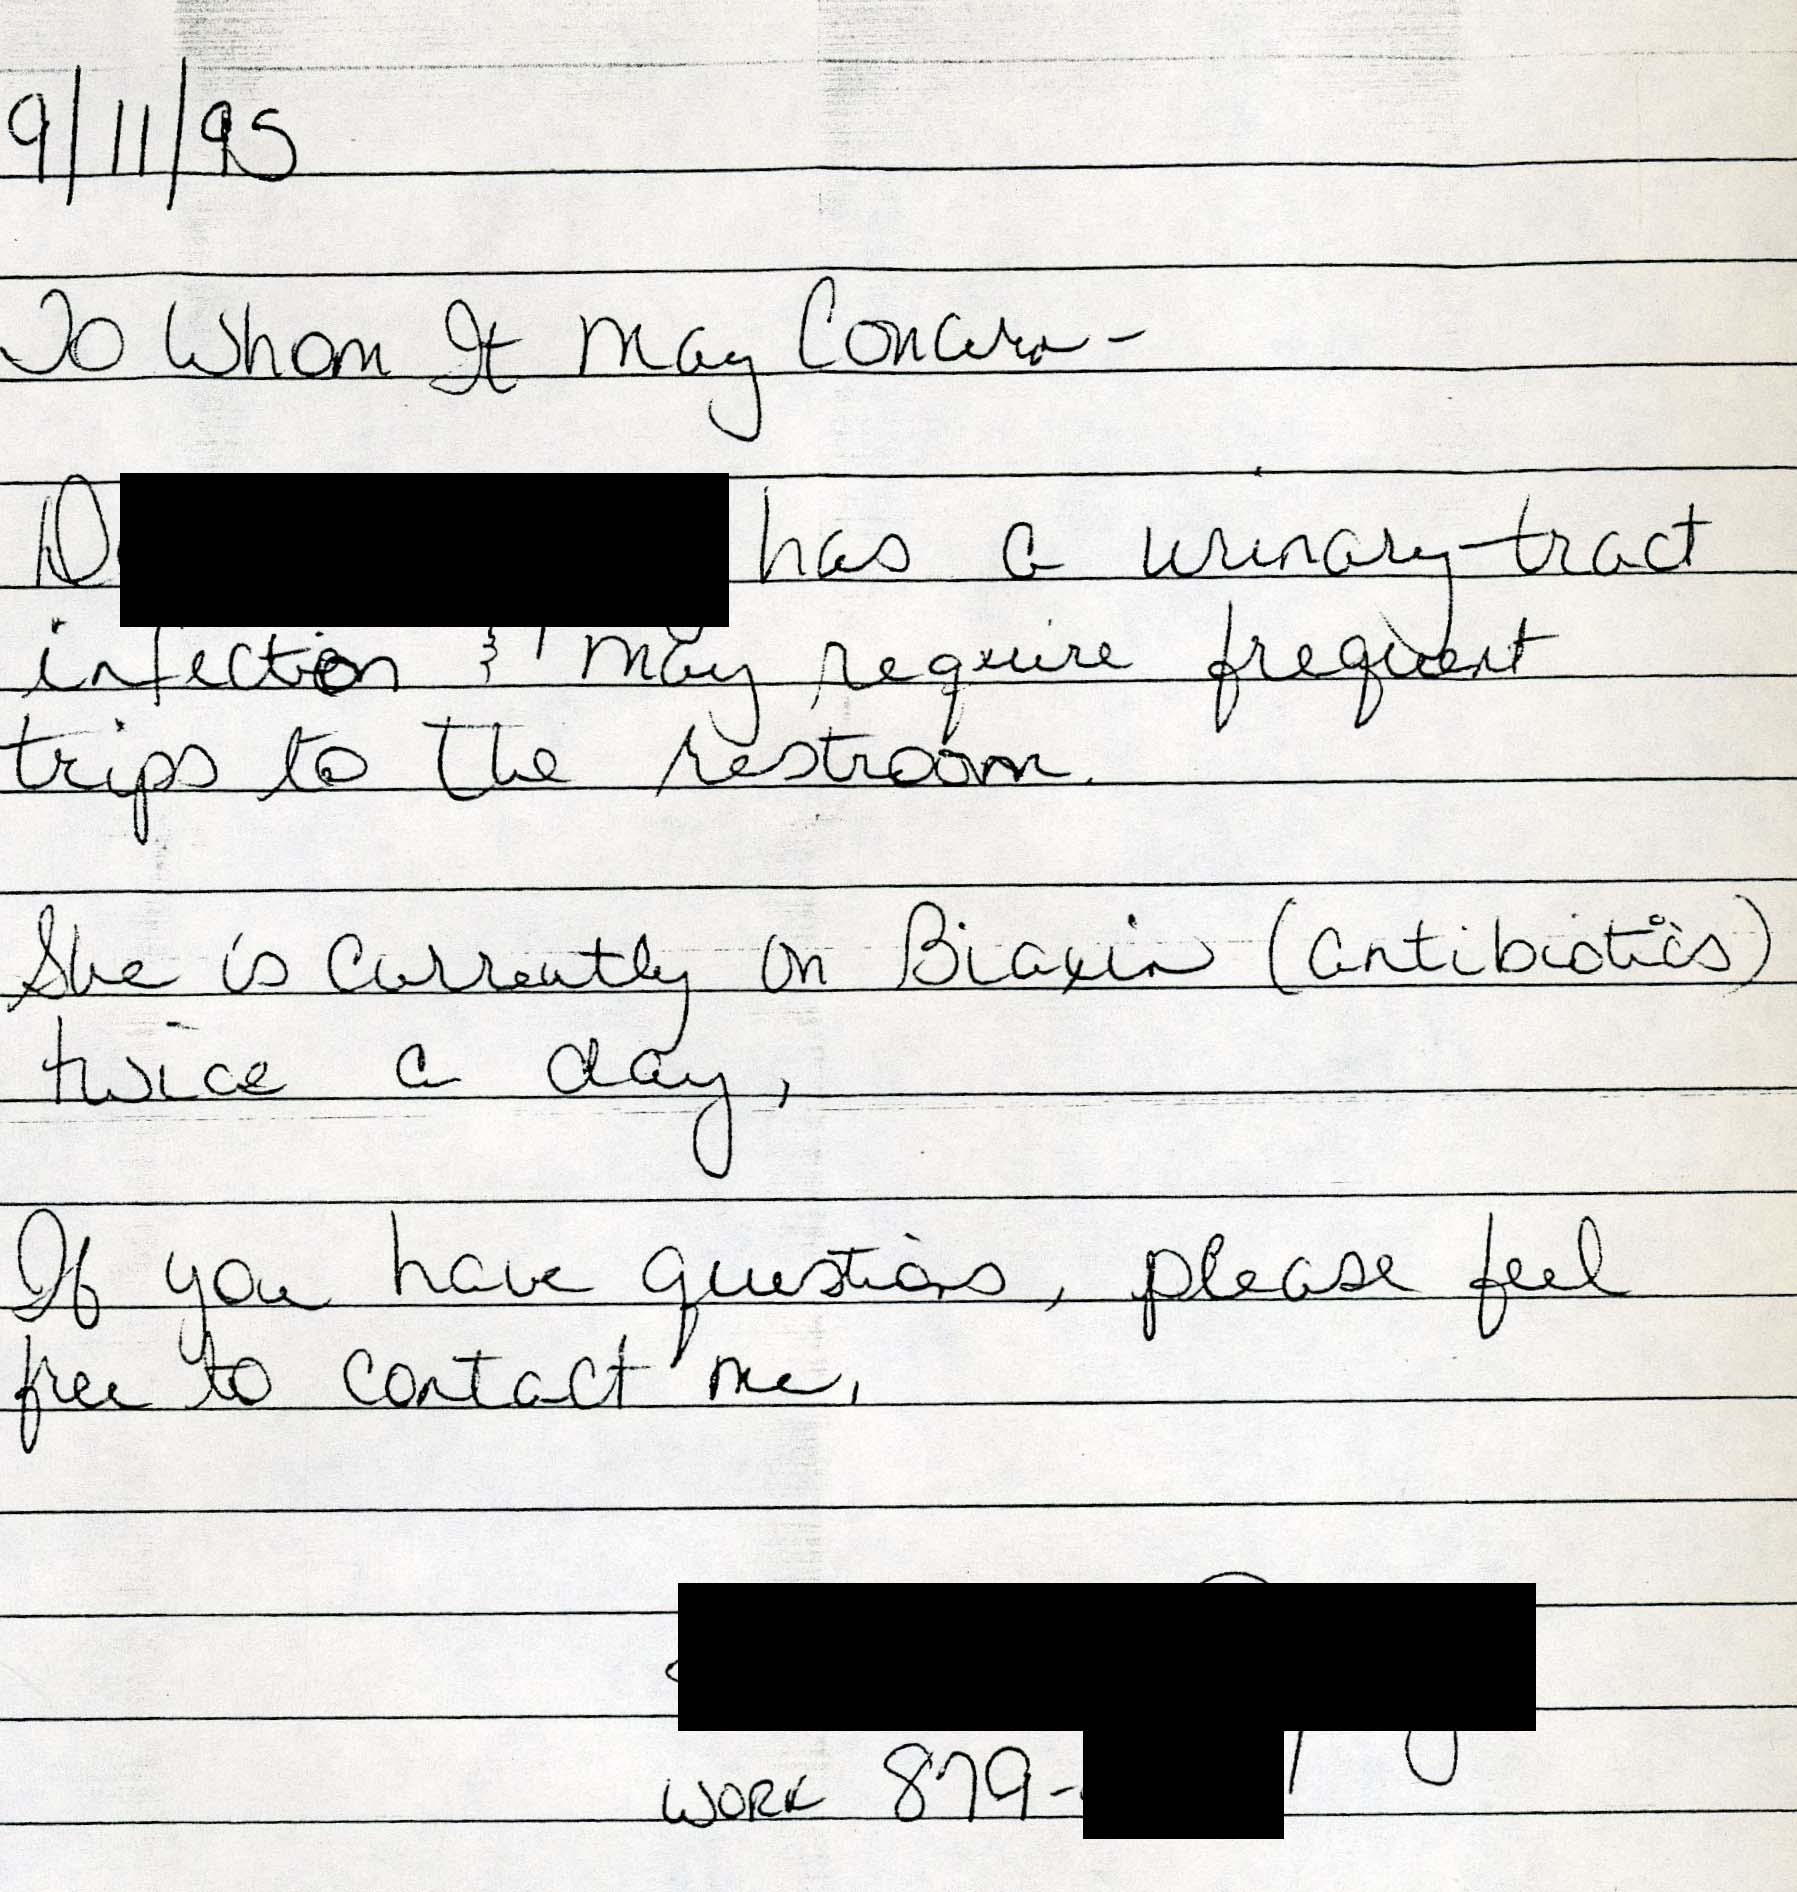 9/11/95
To Whom It May Concern-
D has a urinary tract
infection & may require frequent
trips to the restroom.
She is currently on Biaxin (antibiotics)
twice a day,
If you have questions, please feel
free to contact me,
WORK 879-